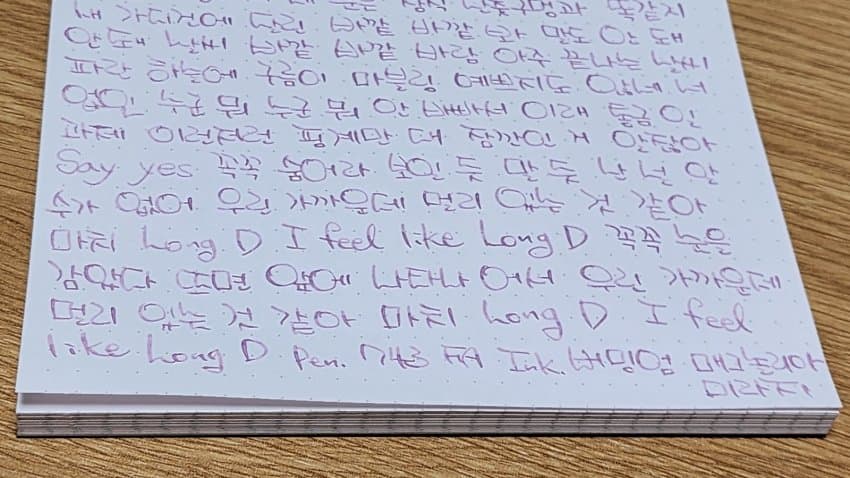 장식 단춧구멍과 똑같지
내 가디건에 달린 바깥 바깥 봐 말도 안 돼
안돼 날씨 바깥 바깥 바람 아주 끝나는 날씨
파란 하늘에 구름이 마블링 예쁘지도 않네 너
없인 누군 뭐 누군 뭐 안 바빠서 이래 톡금인
과제 이런저런 핑계만 대 잠깐인 거 안잖아
Say yes 꼭꼭 숨어라 보인 듯 만 듯 난 널 알
수가 없어 우린 가까운데 멀리 있는 것 같아
마치 Long D I feel like Long D 꼭꼭 눈을
감았다 뜨면 앞에 나타나 어서 우린 가까운데
멀리 있는 것 같아 마치 Long D I feel
like Long D Pen. 743 Ink. 버밍엄 매그놀리아
미라지